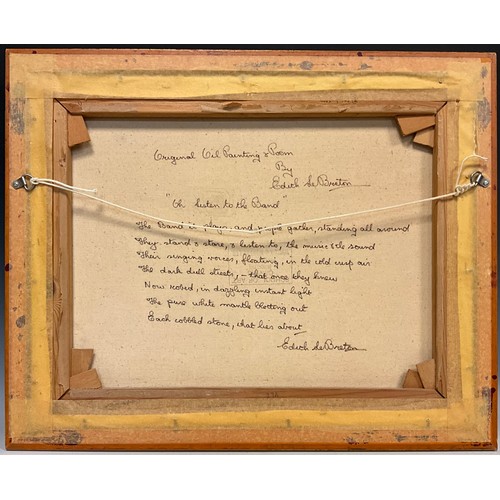 Original Oil Painting & Poem
By
Edith Le Breton
"Oh listen to the Band"
The Band it plays, and people gather, standing all around
They stand & stare, & listen to, the music & the sound
Their singing voices, floating, in the cold crisp air
The dark dull streets, - that once they knew
Now robed, in dazzling instant light
The pure white mantle blotting out
Each cobbled stone, that lies about
Edith Le Breton